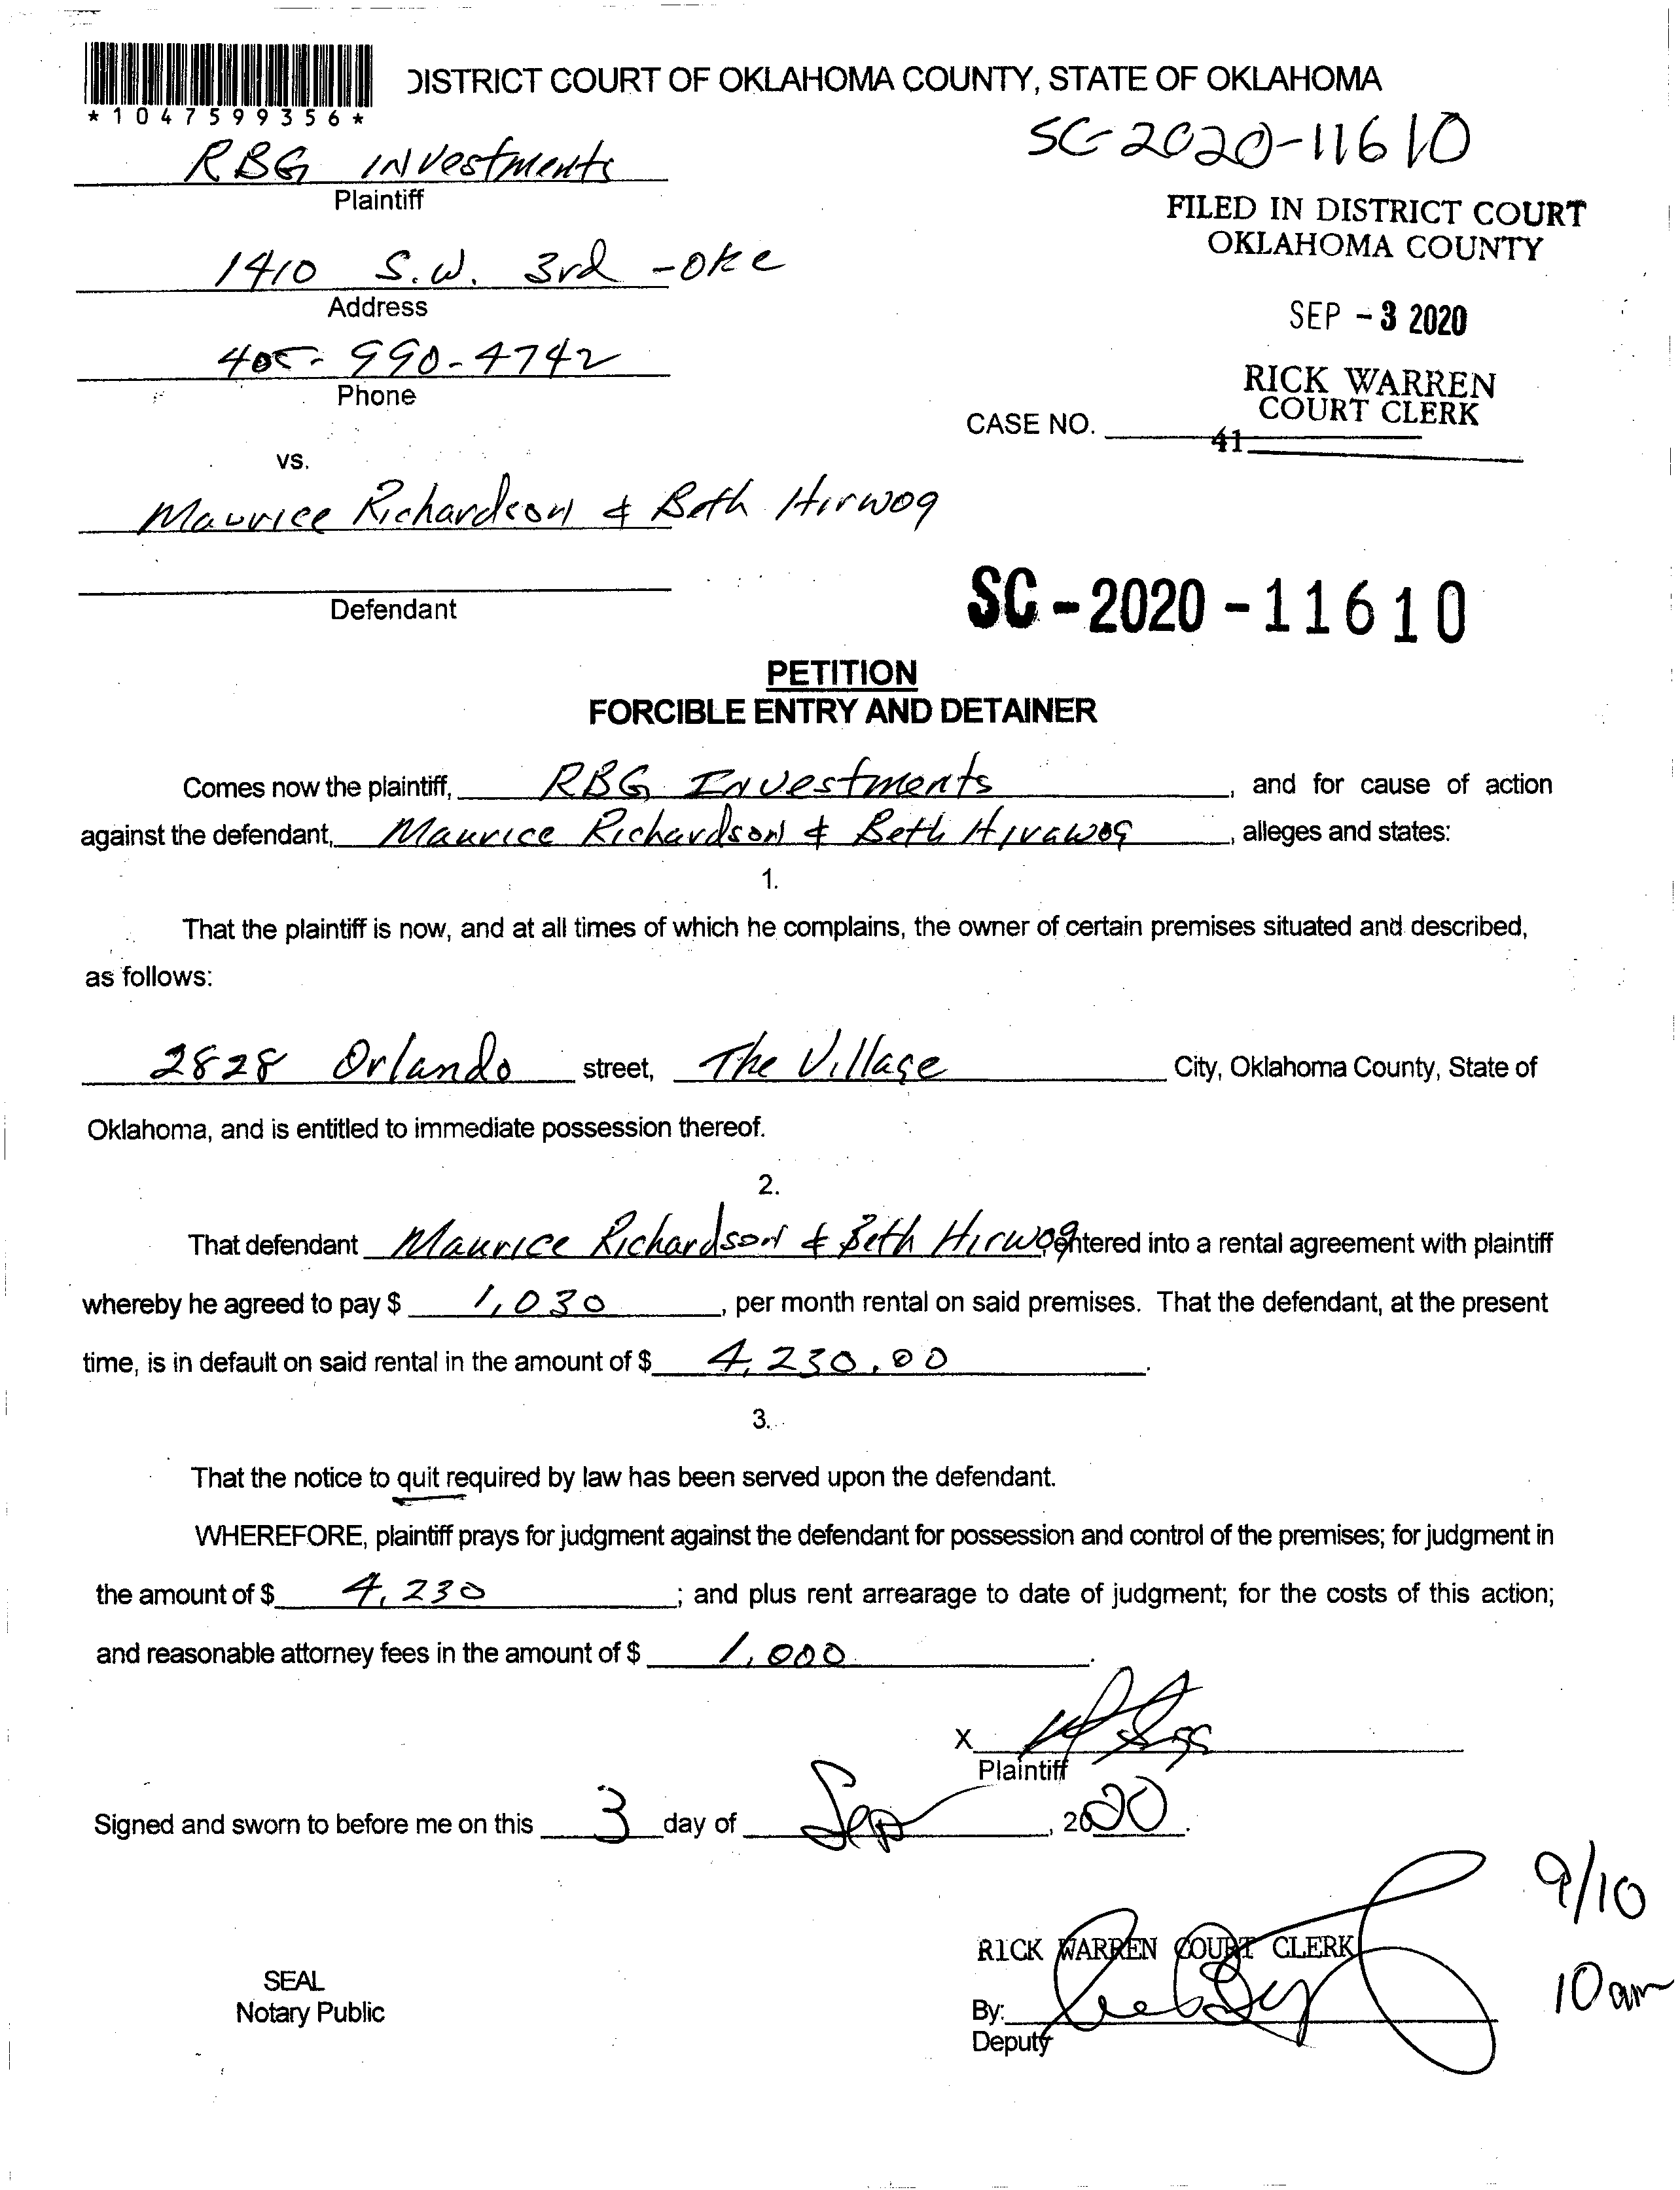 *1047599356*
DISTRICT COURT OF OKLAHOMA COUNTY, STATE OF OKLAHOMA
SC-2020-11610
RBG Investments
Plaintiff
FILED IN DISTRICT COURT
OKLAHOMA COUNTY
1410 S.W. 3rd - OKC
Address
SEP - 3 2020
405-990-4742
Phone
RICK WARREN
COURT CLERK
CASE NO.
41
vs.
Maurice Richardson & Beth Hirwog
Defendant
SC - 2020 - 11610
PETITION
FORCIBLE ENTRY AND DETAINER
Comes now the plaintiff, RBG Investments, and for cause of action
against the defendant, Maurice Richardson & Beth Hirawog, alleges and states:
1.
That the plaintiff is now, and at all times of which he complains, the owner of certain premises situated and described,
as follows:
2828 Orlando street, The Village City, Oklahoma County, State of
Oklahoma, and is entitled to immediate possession thereof.
2.
That defendant Maurice Richardson & Beth Hirwog, entered into a rental agreement with plaintiff
whereby he agreed to pay $ 1,030, per month rental on said premises. That the defendant, at the present
time, is in default on said rental in the amount of $ 4,230.00.
3.
That the notice to quit required by law has been served upon the defendant.
WHEREFORE, plaintiff prays for judgment against the defendant for possession and control of the premises; for judgment in
the amount of $ 4,230; and plus rent arrearage to date of judgment; for the costs of this action;
and reasonable attorney fees in the amount of $ 1,000.
X
Plaintiff
Signed and sworn to before me on this 3 day of Sep, 2020.
9/10
10am
RICK WARREN COURT CLERK
SEAL
Notary Public
By:
Deputy